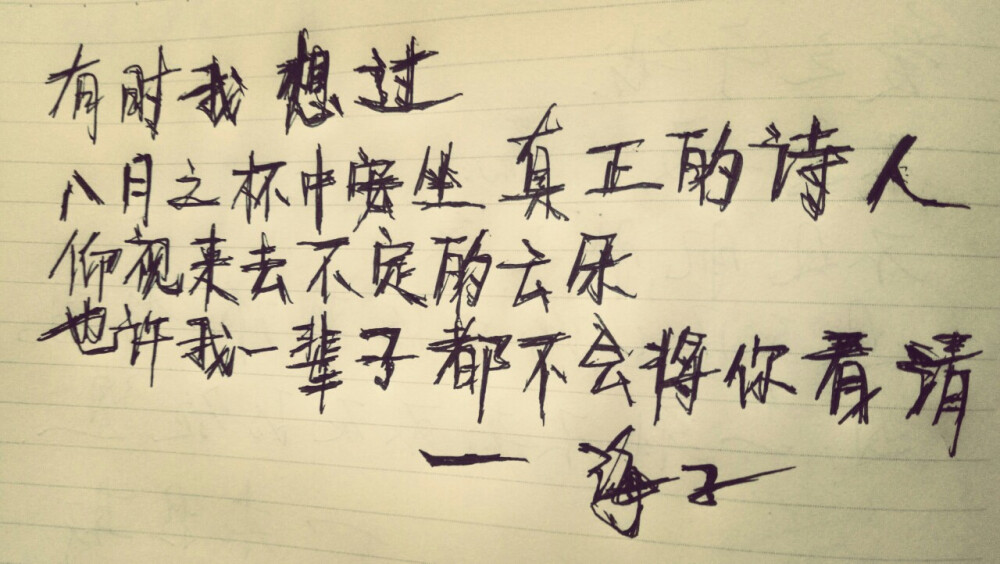 有时我想过
八月之杯中安坐真正的诗人
仰视来去不定的云朵
也许我一辈子都不会将你看请
一海子